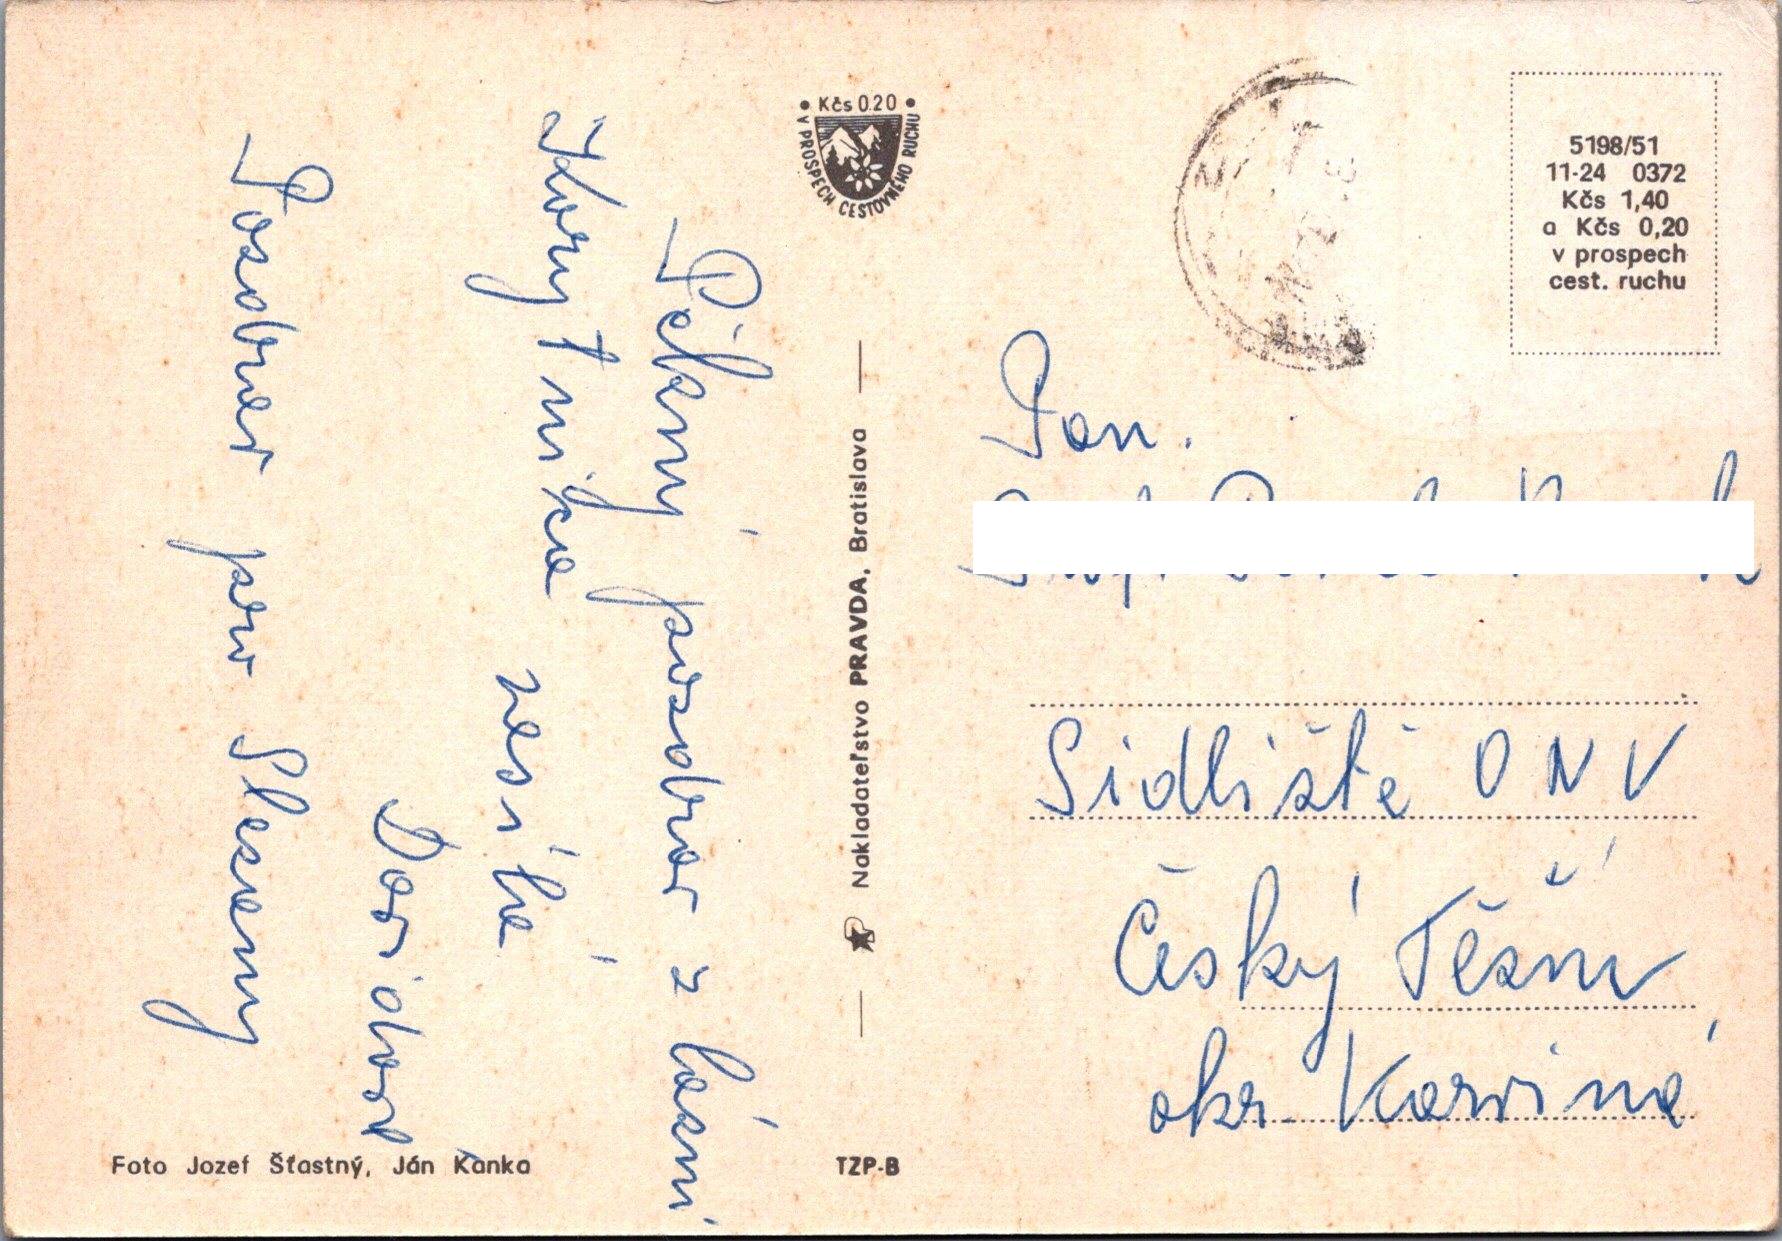 Pěkný pozdrav z lázní
Korytnice zasílá
Davidová
Pozdrav pro Slezany
• Kčs 0.20 •
V PROSPECH CESTOVNÉHO RUCHU
Nakladateľstvo PRAVDA, Bratislava
5198/51
11-24 0372
Kčs 1,40
a Kčs 0,20
v prospech
cest. ruchu
Pan.
Sidliště ONV
Český Těšín
okr. Karviná
Foto Jozef Šťastný, Ján Kanka
TZP-B